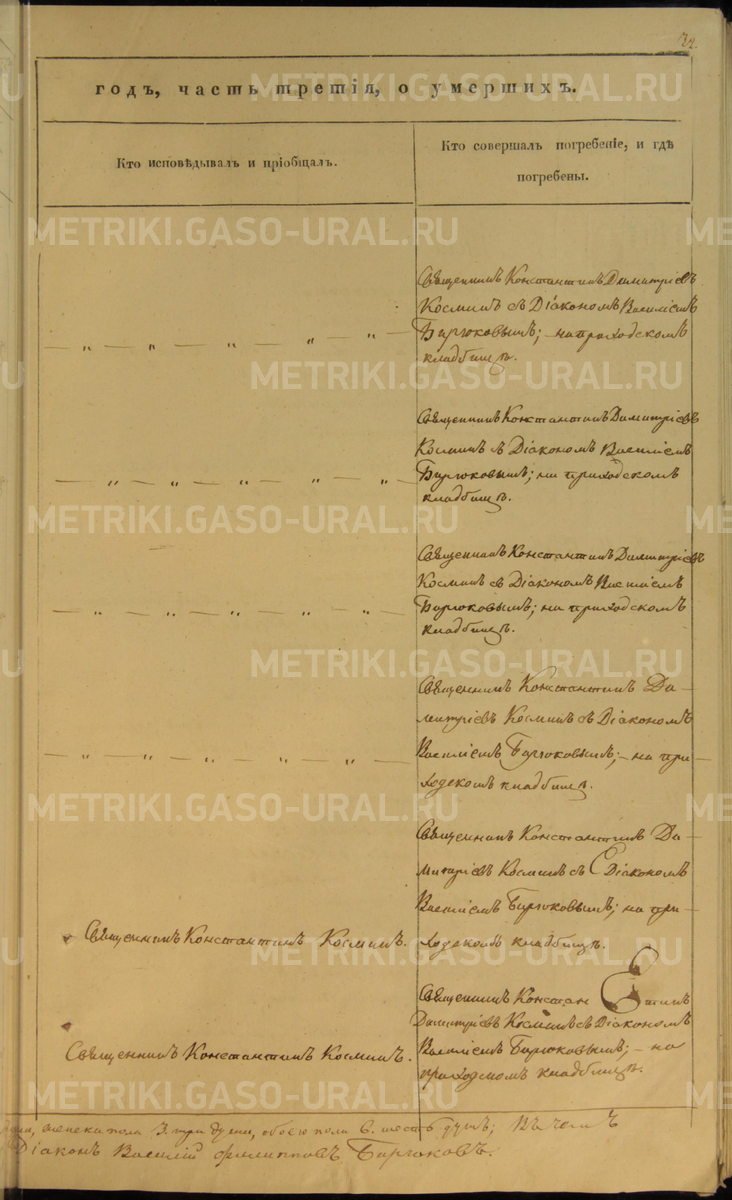 годъ, часть третія, о умершихъ.
Кто исповѣдывалъ и пріобщалъ.
Кто совершалъ погребеніе, и гдѣ
погребены.
Священникъ Константинъ Димитріевъ
Косминъ съ Діакономъ Василіемъ
Бирюковымъ; на приходскомъ
кладбищѣ.
Священникъ Константинъ Димитріевъ
Косминъ съ Діакономъ Василіемъ
Бирюковымъ; на приходскомъ
кладбищѣ.
Священникъ Константинъ Димитріевъ
Косминъ съ Діакономъ Василіемъ
Бирюковымъ; на приходскомъ
кладбищѣ.
Священникъ Константинъ Ди-
митріевъ Косминъ съ Діакономъ
Василіемъ Бирюковымъ; – на при-
ходскомъ кладбищѣ.
Священникъ Константинъ Ди-
митріевъ Косминъ съ Діакономъ
Василіемъ Бирюковымъ; на при-
Священникъ Константинъ Косминъ.
ходскомъ кладбищѣ.
Священникъ Константинъ
Димитріевъ Косминъ съ Діакономъ
Священникъ Константинъ Косминъ.
Василіемъ Бирюковымъ; – на
приходскомъ кладбищѣ.
женска пола 3. три души, обоего пола 6. шесть душъ; Въ чемъ
Діаконъ Василій Филипповъ Бирюковъ.
METRIKI.GASO-URAL.RU